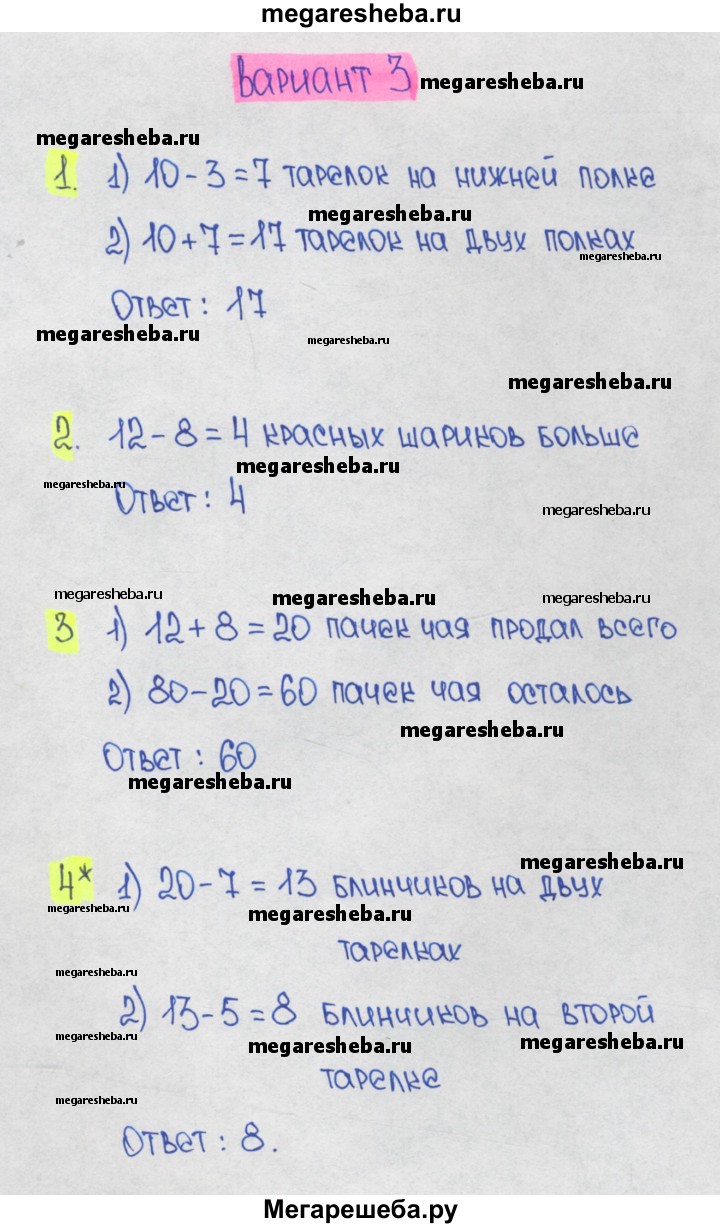 megaresheba.ru
вариант 3 megaresheba.ru
megaresheba.ru
1. 1) 10 - 3 = 7 тарелок на нижней полке
megaresheba.ru
2) 10 + 7 = 17 тарелок на двух полках
megaresheba.ru
Ответ: 17
megaresheba.ru megaresheba.ru
megaresheba.ru
2. 12 - 8 = 4 красных шариков больше
megaresheba.ru
megaresheba.ru
Ответ: 4
megaresheba.ru
megaresheba.ru megaresheba.ru megaresheba.ru
3 1) 12 + 8 = 20 пачек чая продал всего
2) 80 - 20 = 60 пачек чая осталось
megaresheba.ru
Ответ: 60
megaresheba.ru
megaresheba.ru
4* 1) 20 - 7 = 13 блинчиков на двух
megaresheba.ru megaresheba.ru
тарелках
megaresheba.ru
2) 13 - 5 = 8 блинчиков на второй
megaresheba.ru megaresheba.ru megaresheba.ru
тарелке
megaresheba.ru
Ответ: 8.
Мегарешеба.ру